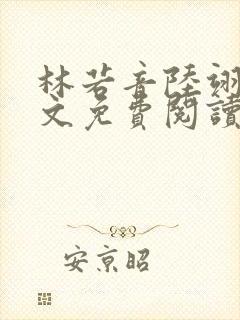 林若音陸翊
文免費閱讀
安京昭